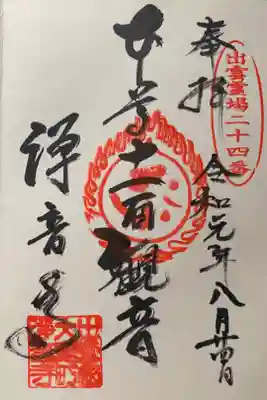 出雲霊場二十四番
奉拝 令和元年八月廿四日
本尊十一面觀音
淨音寺